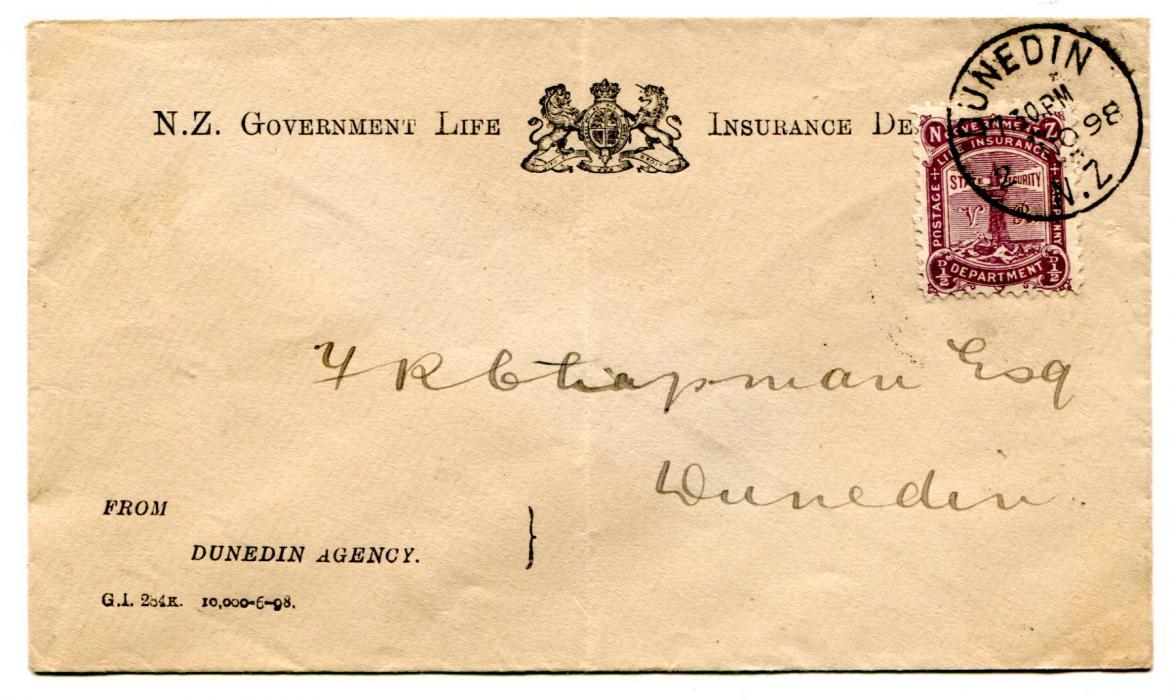 N.Z. GOVERNMENT LIFE INSURANCE DE
DUNEDIN
30 PM
98
N.Z
N GOVERNMENT Z
LIFE INSURANCE
STATE SECURITY
V R
POSTAGE
DEPARTMENT
D½ D½
F R Chapman Esq
Dunedin.
FROM
DUNEDIN AGENCY.
G.I. 284K. 10,000-6-98.